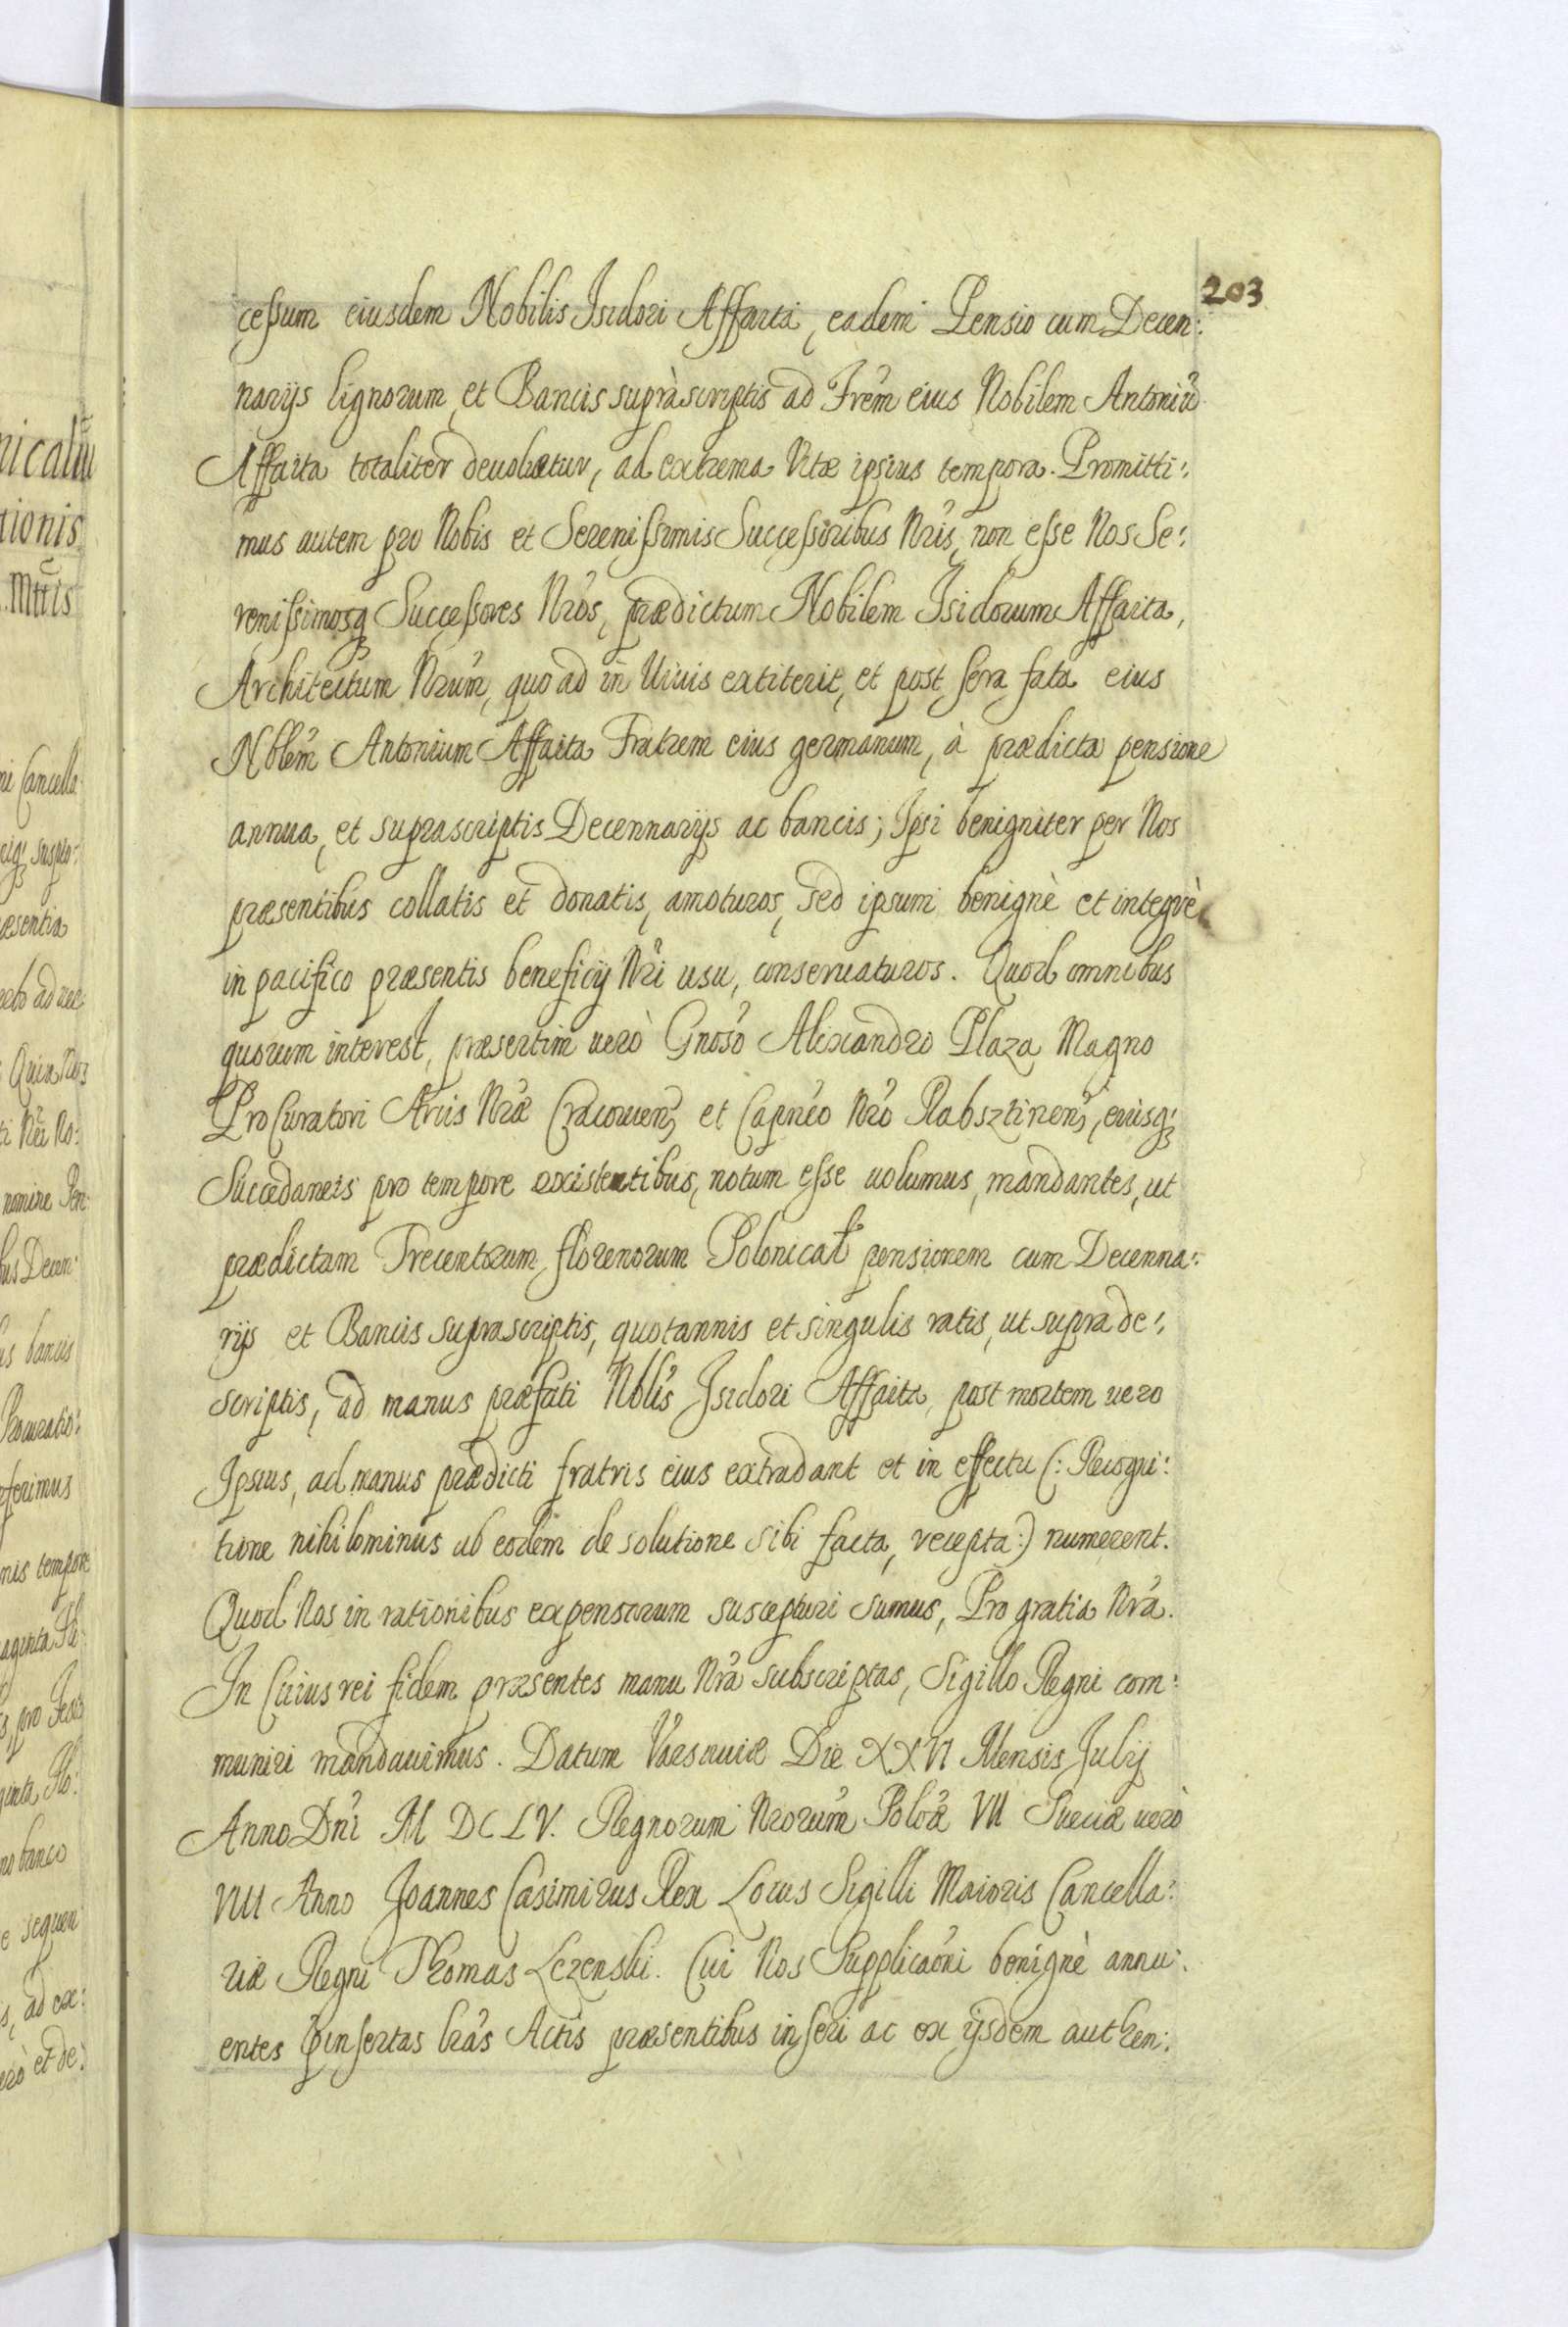 203
cessum eiusdem Nobilis Isidori Affaita, eadem Pensio cum Decen:
narijs lignorum et Bancis suprà scriptis ad Frẽm eius Nobilem Antoniũ
Affaita totaliter deuoluetur, ad extrema Vitæ ipsius tempora. Promitti:
mus autem pro Nobis et Serenissimis Successoribus Nr̃is, non esse Nos Se:
renissimosq Successores Nr̃os, prædictum Nobilem Isidorum Affaita,
Architectum Nr̃um, quo ad in Viuis extiterit, et post sera fata eius
Noblẽm Antonium Affaita Fratrem eius germanum, à prædicta pensione
annua, et suprascriptis Decennarijs ac bancis; Ipsi benigniter per Nos
præsentibus collatis et donatis, amoturos, sed ipsum benignè et integrè
in pacifico præsentis beneficij Nr̃i usu, conseruaturos. Quod omnibus
quorum interest, præsertim uerò Gnosõ Alexandro Plaza Magno
Procuratori Arcis Nr̃æ Cracouien, et Capnẽo Nr̃o Rabsztinen, eiusq;
Succedaneis pro tempore existentibus, notum esse uolumus, mandantes, ut
prædictam Trecentorum florenorum Polonicał pensionem cum Decenna:
rijs et Bancis suprascriptis, quotannis et singulis ratis, ut supra de:
scriptis, ad manus præfati Noblis Isidori Affaita, post mortem uero
Ipsius, ad manus prædicti fratris eius extradant et in effectu (: Recogni:
tione nihilominus ab eodem de solutione sibi facta, recepta:) numerent.
Quod Nos in rationibus expensarum suscepturi sumus, Pro gratia Nr̃a.
In Cuius rei fidem præsentes manu Nr̃a subscriptas, Sigillo Regni com:
muniri mandauimus. Datum Varsauiæ Die XXVI Mensis Julij
Anno Dn̄i M DC LV. Regnorum Nrorũm Polõæ VII Sueciæ uerò
VIII Anno Joannes Casimirus Rex Locus Sigilli Maioris Cancella:
riæ Regni Thomas Lezenski. Cui Nos Supplicaõni benignè annu:
entes p̃insertas lrãs Actis præsentibus inseri ac ex ijsdem authen: